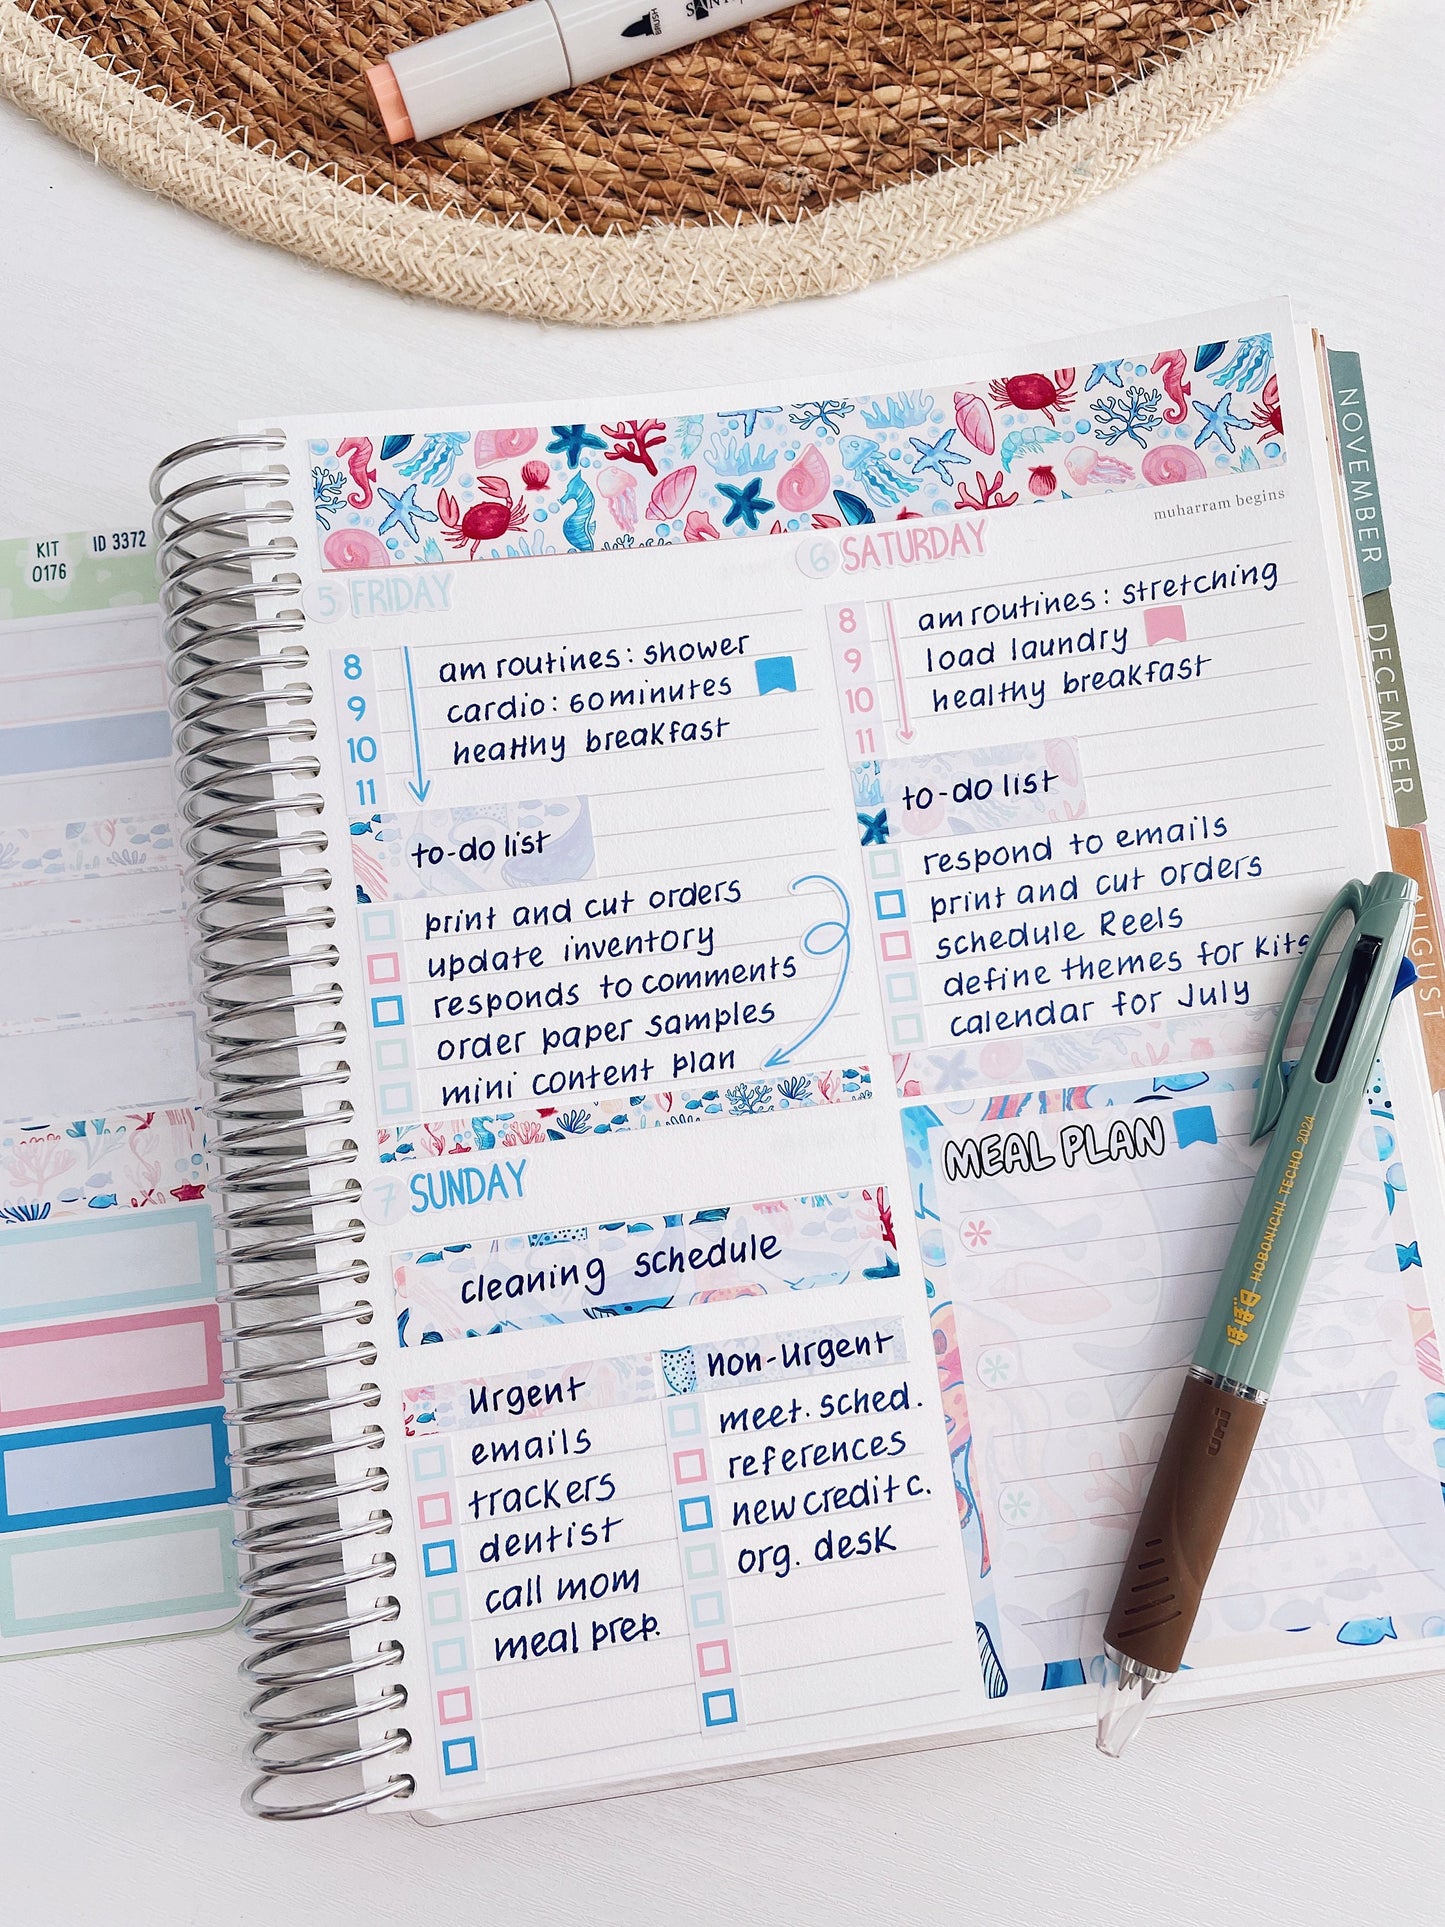 BRUSH
KIT
0176
ID 3372
muharram begins
5 FRIDAY
8
9
10
11
am routines: shower
cardio: 60 minutes
healthy breakfast
to-do list
print and cut orders
update inventory
responds to comments
order paper samples
mini content plan
6 SATURDAY
8
9
10
11
am routines: stretching
load laundry
healthy breakfast
to-do list
respond to emails
print and cut orders
schedule Reels
define themes for kits
calendar for July
7 SUNDAY
cleaning schedule
urgent
emails
trackers
dentist
call mom
meal prep.
non-urgent
meet. sched.
references
new credit c.
org. desk
MEAL PLAN
NOVEMBER
DECEMBER
AUGUST
ほぼ日 HOBONICHI TECHO 2024
uni